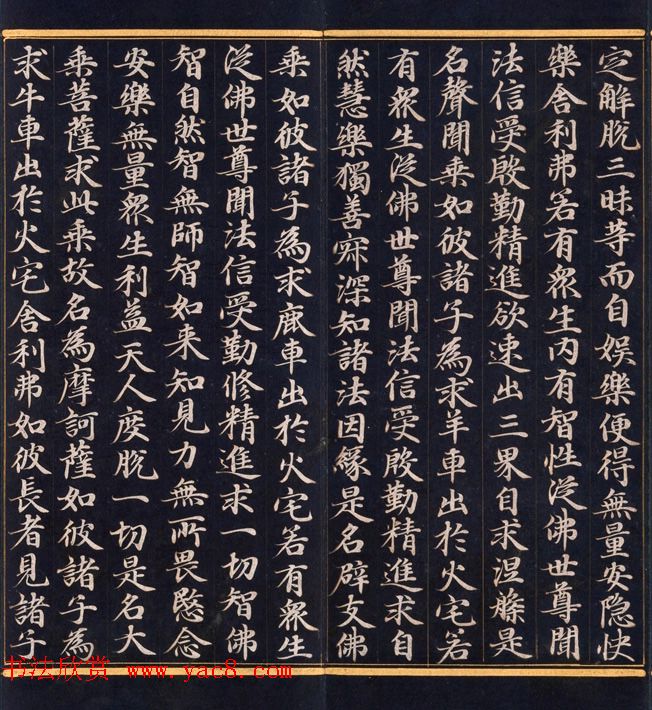 定解脫三昧等而自娛樂便得無量安隱快
樂舍利弗若有眾生內有智性從佛世尊聞
法信受殷勤精進欲速出三界自求涅槃是
名聲聞乘如彼諸子為求羊車出於火宅若
有眾生從佛世尊聞法信受殷勤精進求自
然慧樂獨善寂深知諸法因緣是名辟支佛
乘如彼諸子為求鹿車出於火宅若有眾生
從佛世尊聞法信受勤修精進求一切智佛
智自然智無師智如来知見力無所畏愍念
安樂無量眾生利益天人度脫一切是名大
乘菩薩求此乘故名為摩訶薩如彼諸子為
求牛車出於火宅舍利弗如彼長者見諸子
书法欣赏 www.yac8.com